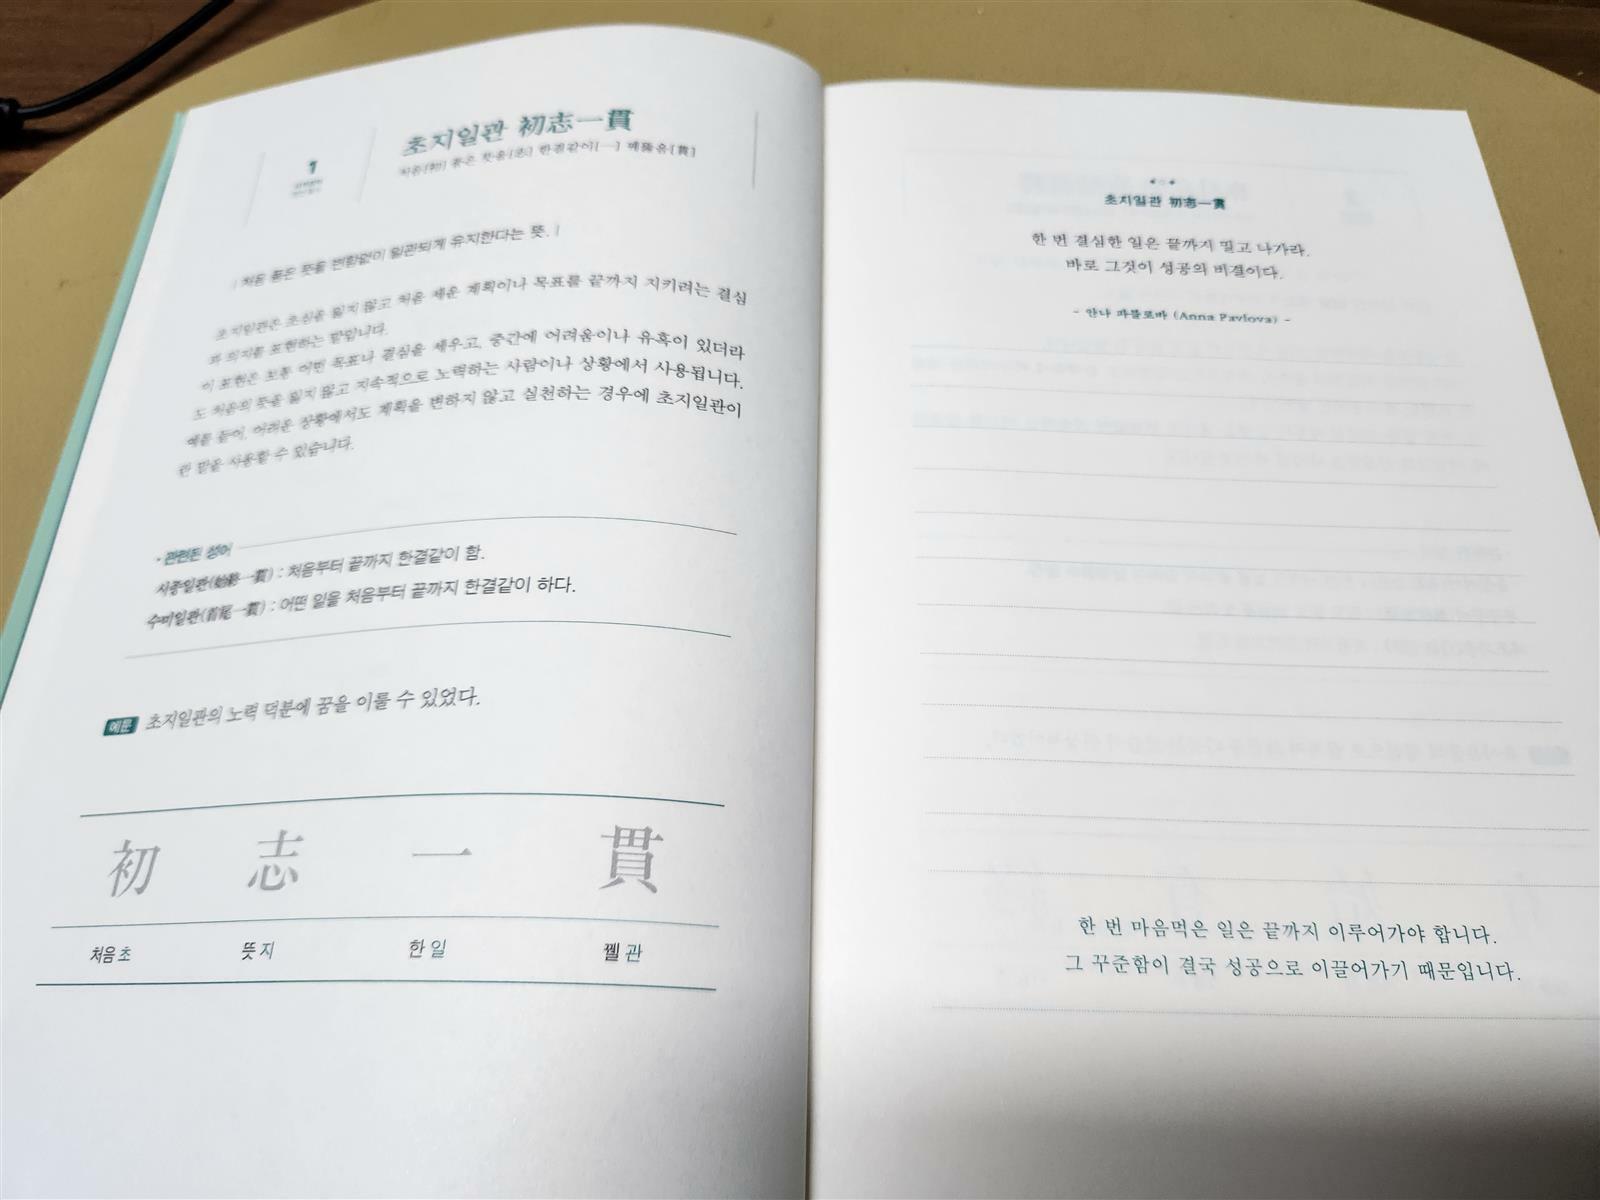 1
초지일관 初志一貫
처음[初] 품은 뜻을[志] 한결같이[一] 꿰뚫음[貫]
| 처음 품은 뜻을 변함없이 일관되게 유지한다는 뜻. |
초지일관은 초심을 잃지 않고 처음 세운 계획이나 목표를 끝까지 지키려는 결심
과 의지를 표현하는 말입니다.
이 표현은 보통 어떤 목표나 결심을 세우고, 중간에 어려움이나 유혹이 있더라
도 처음의 뜻을 잃지 않고 지속적으로 노력하는 사람이나 상황에서 사용됩니다.
예를 들어, 어려운 상황에서도 계획을 변하지 않고 실천하는 경우에 초지일관이
란 말을 사용할 수 있습니다.
• 관련된 성어
시종일관(始終一貫) : 처음부터 끝까지 한결같이 함.
수미일관(首尾一貫) : 어떤 일을 처음부터 끝까지 한결같이 하다.
예문 초지일관의 노력 덕분에 꿈을 이룰 수 있었다.
初 志 一 貫
처음 초 뜻 지 한 일 꿸 관
초지일관 初志一貫
한 번 결심한 일은 끝까지 밀고 나가라.
바로 그것이 성공의 비결이다.
- 안나 파블로바 (Anna Pavlova) -
한 번 마음먹은 일은 끝까지 이루어가야 합니다.
그 꾸준함이 결국 성공으로 이끌어가기 때문입니다.